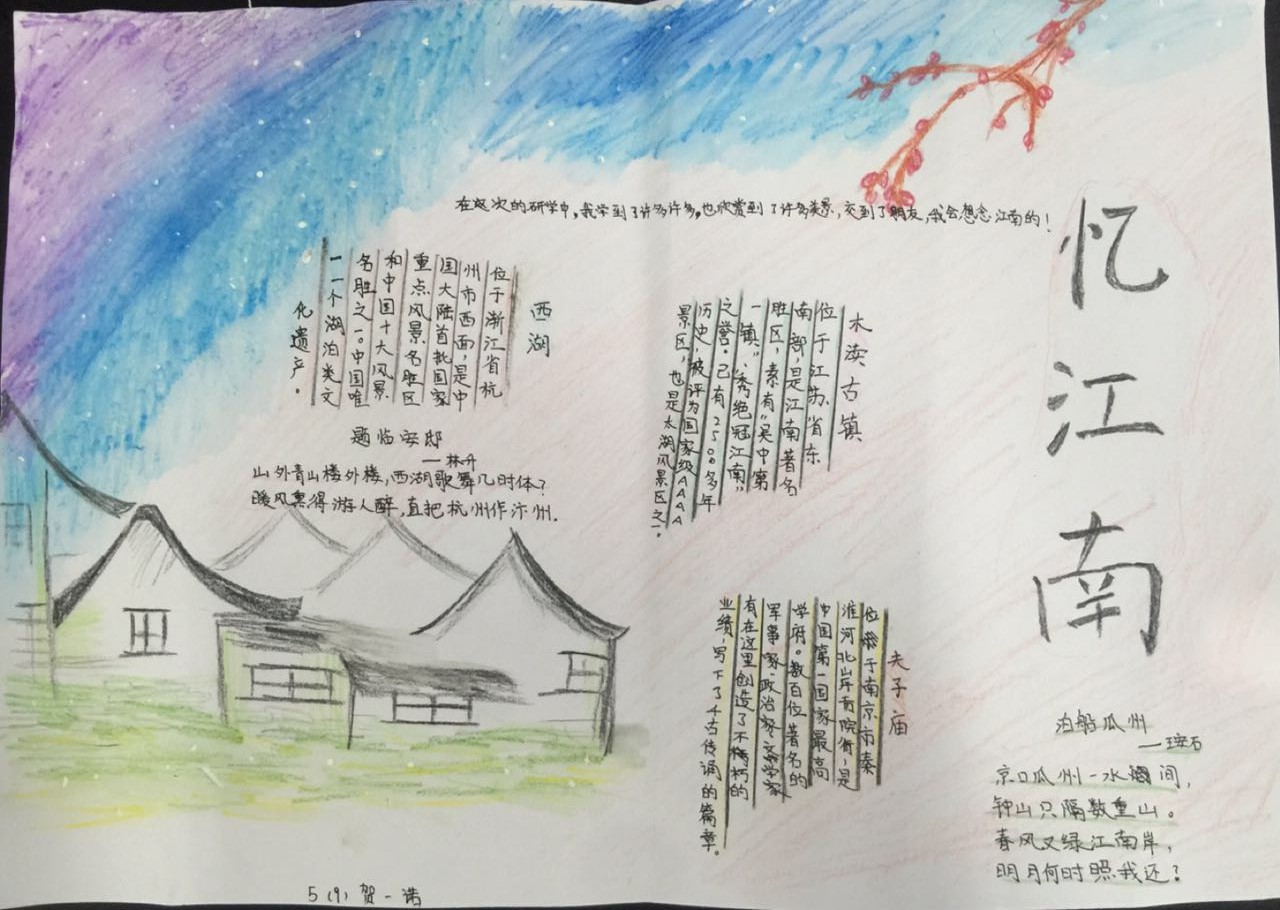 忆江南
在这次的研学中,我学到了许多许多,也欣赏到了许多美景,交到了朋友,我会想念江南的!
西湖
位于浙江省杭
州市西面,是中
国大陆首批国家
重点风景名胜区
和中国十大风景
名胜之一。中国唯
一一个湖泊类文
化遗产。
题临安邸
——林升
山外青山楼外楼,西湖歌舞几时休?
暖风熏得游人醉,直把杭州作汴州.
木渎古镇
位于江苏省东
南部,是江南著名
胜区,素有“吴中第
一镇”、“秀绝冠江南”
之誉。已有2500多年
历史,被评为国家级AAAA
景区,也是太湖风景区之一。
夫子庙
位于南京市秦
淮河北岸贡院街,是
中国第一国家最高
学府。数百位著名的
军事家、政治家、文学家
有在这里创造了不朽的
业绩,写下了千古传诵的篇章。
泊船瓜州
——王安石
京口瓜州一水间,
钟山只隔数重山。
春风又绿江南岸,
明月何时照我还?
5(9)贺一诺